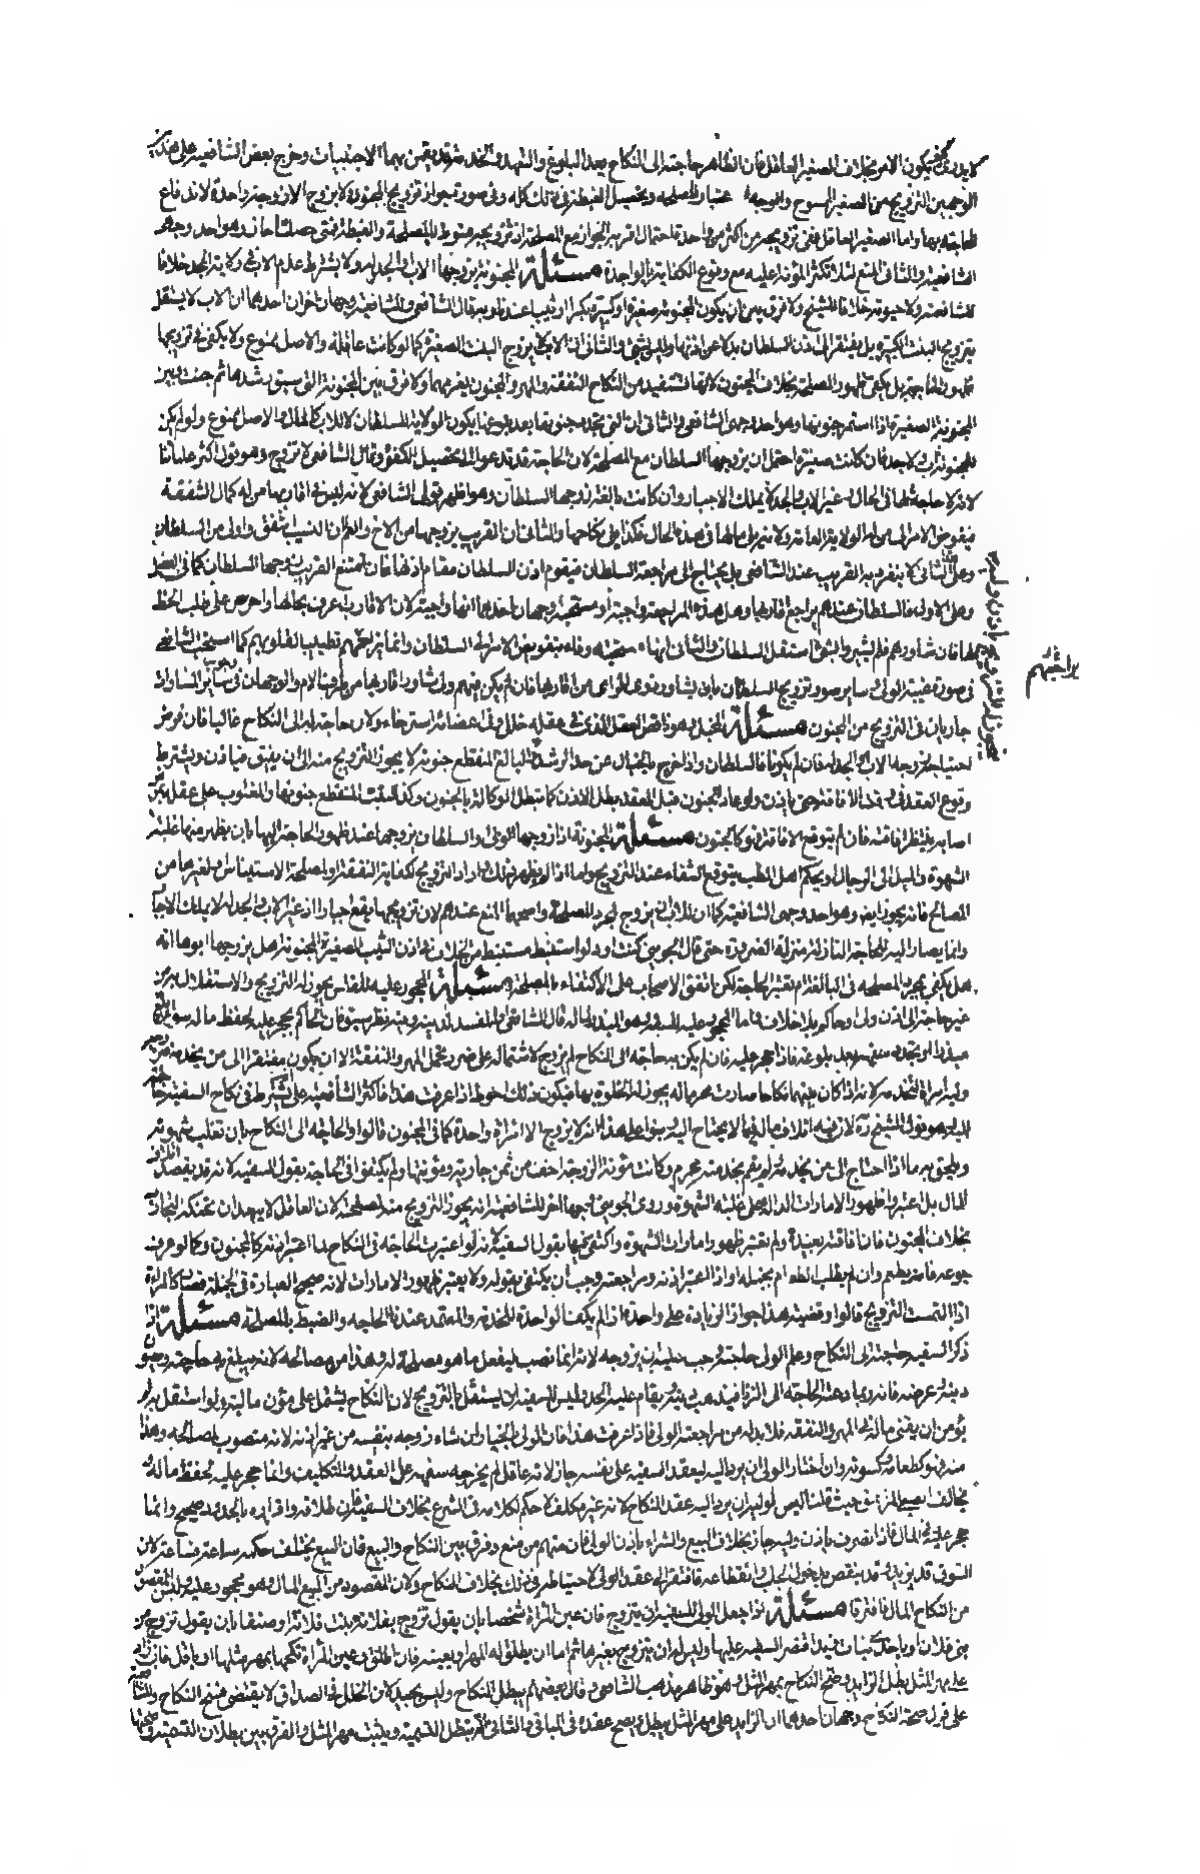 لا يدرى كيف يكون الامر بخلاف الصغير العاقل فان الظاهر حاجته الى النكاح بعد البلوغ والتعهد والخدمة قد يقمن بهما الاجنبيات وخرج بعض الشافعية على هذين
الوجهين التزويج من الصغير الممسوح والوجه اعتبار المصلحة وتحصيل الغبطة في ذلك كله وفي صورة جواز تزويج المجنون لا يزوج الا زوجة واحدة لاندفاع
الحاجة بها واما الصغير العاقل ففي تزويجه من اكثر من واحدة احتمال اقربه الجواز مع المصلحة اذ تزويجه منوط بالمصلحة والغبطة فمتى حصلتا جاز وهو احد وجهي
الشافعية والثاني المنع لئلا تكثر المؤنة عليه مع وقوع الكفاية بالواحدة مسئلة المجنونة يزوجها الاب والجد له ولا يشترط عدم الاب في ولاية الجد خلافا
للشافعية ولا حيوته خلافا للشيخ ولا فرق بين ان يكون المجنونة صغيرة او كبيرة بكرا او ثيبا عندنا وبه قال الشافعي وللشافعية وجهان اخران احدهما ان الاب لا يستقل
بتزويج البنت الكبيرة بل يفتقر الى اذن السلطان بدلا عن اذنها وليس بشيء والثاني ان الاب لا يزوج البنت الصغيرة كما لو كانت عاقلة والاصل ممنوع ولا يكفي في تزويجها
ظهور الحاجة بل يكفي ظهور المصلحة بخلاف المجنون لانها تستفيد من النكاح النفقة والمهر والمجنون يغرمهما ولا فرق بين المجنونة التي سبق رشدها ثم جنت وبين
المجنونة الصغيرة اذا استمر جنونها وهو احد وجهي الشافعي والثاني ان التي تجدد جنونها بعد بلوغها يكون الولاية للسلطان لا للاب كالمال والاصل ممنوع ولو لم يكن
للمجنونة اب ولا جد فان كانت صغيرة احتمل ان يزوجها السلطان مع المصلحة لان الحاجة قد تدعو الى تحصيل الكفؤ وقال الشافعي لا تزوج وهو قول اكثر علمائنا
لانه لا حاجة لها في الحال وغير الاب والجد لا يملك الاجبار وان كانت بالغة زوجها السلطان وهو اظهر قولي الشافعي لانه ليس في اقاربها من له كمال الشفقة
فيفوض الامر الى من له الولاية العامة ولانه يلي مالها في هذه الحال فكذا يلي نكاحها والثاني ان القريب يزوجها من الاخ والعم لان النسيب اشفق واولى من السلطان
وعلى الثاني لا ينفرد به القريب عند الشافعي بل يحتاج الى مراجعة السلطان فيقوم اذن السلطان مقام اذنها فان امتنع القريب زوجها السلطان كما في العضل
وعلى الاول فالسلطان عندهم يراجع اقاربها وهل هذه المراجعة واجبة او مستحبة وجهان احدهما انها واجبة لان الاقارب اعرف بحالها واحرص على طلب الحظ
لها فان شاورهم فلم يشيروا بشيء استقل السلطان والثاني انها مستحبة وفاء بتفويض الامر الى السلطان وانما يراجعهم تطييبا لقلوبهم كما استحب الشافعي
في صورة غيبة الولي وساير صور تزويج السلطان
جاريان في التزويج من المجنون مسئلة المخبل وهو ناقص العقل الذي في عقله خلل وفي اعضائه استرخاء ولا حاجة له الى النكاح غالبا فان فرض
احتياجه زوجه الاب او الجد له فان لم يكونا فالسلطان واذا خرج بالخبال عن حد الرشد البالغ المنقطع جنونه لا يجوز التزويج منه الى ان يفيق فياذن ويشترط
وقوع العقد في وقت الافاقة
اصابه ينتظر افاقته فان لم يتوقع الافاقة فهو كالمجنون مسئلة المجنونة اذا زوجها الولي او السلطان يزوجها عند ظهور الحاجة اليها بان يظهر منها غلبة
الشهوة والميل الى الرجال او يحكم اهل الطب بتوقع الشفاء عند التزويج واما اذا لم يظهر ذلك واراد التزويج لكفاية النفقة او لمصلحة الاستيناس او لغيرها من
المصالح فانه يجوز ايضا وهو احد وجهي الشافعية كما ان للاب ان يزوج لمجرد المصلحة واصحهما المنع عندهم لان تزويجها يقع جبارا اذ غير الاب والجد له لا يملك الاجبار
وانما يصار اليه للحاجة النازلة منزلة الضرورة حتى قال الجويني كنت اود لو استنبط مستنبط من الخلاف في اذن الثيب الصغيرة المجنونة هل يزوجها ابوها انه
هل يكفي مجرد المصلحة في البالغة ام يعتبر الحاجة لكن اتفق الاصحاب على الاكتفاء بالمصلحة مسئلة المحجور عليه للفلس يجوز له التزويج والاستقلال به من
غير حاجة الى اذن ولي او حاكم بلا خلاف فاما المحجور عليه للسفه وهو المبذر لماله قال الشافعي والمفسد لدينه وفيه نظر سبق فان الحاكم يحجر عليه لحفظ ماله سواء بلغ
مبذرا او تجدد سفهه بعد بلوغه فاذا حجر عليه فان لم يكن به حاجة الى النكاح لم يزوج لاشتماله على ضرر تحمل المهر والنفقة الا ان يكون مفتقرا الى من يخدمه
وليه امراة لتخدمه لانه اذا كان بينهما نكاحا صارت محرما له يجوز له الخلوة بها فيكون ذلك احوط اذا عرفت هذا فاكثر الشافعية على اشتراط في نكاح السفيه حاجته
اليه وهو قول الشيخ ره لان فيه اتلاف ماله فيما لا يحتاج اليه وبنوا على هذا انه لا يزوج الا امراة واحدة كما في المجنون قالوا والحاجة الى النكاح بان تغلب شهوته
ويلحق به ما اذا احتاج الى من يخدمه ولم يقم بخدمته محرم وكانت مؤنة الزوجة اخف من ثمن جارية ومؤنتها ولم يكتفوا في الحاجة بقول السفيه لانه قد يقصد اتلاف
المال بل اعتبروا ظهور الامارات الدالة على غلبة الشهوة وروى الجويني وجها اخر للشافعية انه يجوز التزويج منه لمصلحة كان العاقل لا يبعد ان تحتنكه التجارب
بخلاف المجنون فان افاقته بعيدة ولم يعتبر ظهور امارات الشهوة واكتفى فيها بقول السفيه لانه لو اعتبرت الحاجة في النكاح لما اعتبر اذنه كالمجنون وكما لو عرف
جوعه فانه يطعم وان لم يطلب الطعام بخلافه واذا اعتبر اذنه ومراجعته وجب ان يكتفى بقوله ولا يعتبر ظهور الامارات لانه صحيح العبارة في الجملة فصار كالمراة
اذا التمست التزويج قالوا وقضية هذا جواز الزيادة على واحدة اذا لم يكف الواحدة للخدمة والمعتمد عندنا الحاجة والضبط بالمصلحة مسئلة اذا
ذكر السفيه حاجته الى النكاح وعلم الولي حاجته وجب عليه ان يزوجه لانه انما نصب ليفعل ما هو مصلحة له وهذا من مصالحه لانه يبلغ به حاجته ويصون
دينه وعرضه فانه ربما دعته الحاجة الى الزنا فيذهب دينه ويقام عليه الحد وليس للسفيه ان يستقل بالتزويج لان النكاح يشتمل على مؤن مالية ولو استقل به لم
يؤمن ان يفني ماله في المهر والنفقة فلا بد له من مراجعة الولي فاذا عرفت هذا فان الولي بالخيار ان شاء زوجه بنفسه من غير اذنه لانه منصوب لمصالحه وهذا
منه فهو كطعامه وكسوته وان اختار الولي ان يرد اليه ليعقد السفيه على نفسه جاز لانه عاقل لم يخرجه سفهه على العقد والتكليف وانما حجر عليه لحفظ ماله
بخالف الصبي المميز حيث قلنا ليس لوليه ان يرد اليه عقد النكاح لانه غير مكلف لا حكم لكلامه في الشرع بخلاف السفيه فان طلاقه واقراره بالحد صحيح وانما
حجر عليه في المال فاذا تصرف باذن وليه جاز بخلاف البيع والشراء باذن الولي فان منهم من منع وفرق بين النكاح والبيع فان البيع يختلف حكمه ساعة فساعة لان
السوق قد يزيد وقد ينقص بدخول الجلب وانقطاعه فافتقر الى عقد الولي لاحتياطه في ذلك بخلاف النكاح ولان المقصود من البيع المال وهو محجور عليه وليس المقصود
من النكاح المال فافترقا مسئلة اذا جعل الولي للسفيه ان يتزوج فان عين المراة شخصا بان يقول تزوج بفلانة بنت فلان او صنفا بان يقول تزوج من
بني فلان او باحدى بنات فلان اقتصر السفيه عليها وليس له ان يتزوج بغيرها ثم اما ان يطلق له المهر او يعينه فان اطلق وعين المراة نكحها بمهر مثلها او باقل فان زاد
على مهر المثل بطل الزايد وصح النكاح بمهر المثل وهو ظاهر مذهب الشافعي وقال بعضهم يبطل النكاح وليس بجيد لان الخلل في الصداق لا يقتضي فسخ النكاح وللشافعية
على قول صحة النكاح وجهان احدهما ان الزايد على مهر المثل يبطل ويصح عقده في الباقي والثاني انه تبطل التسمية ويثبت مهر المثل والفرق بين بطلان التسمية وصحتها